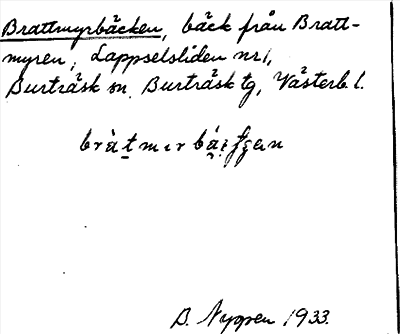 Brattmyrbäcken, bäck från Bratt-
myren, Lappselsliden nr 1,
Burträsk sn, Burträsk tg, Västerb. l.
B. Nygren 1933.